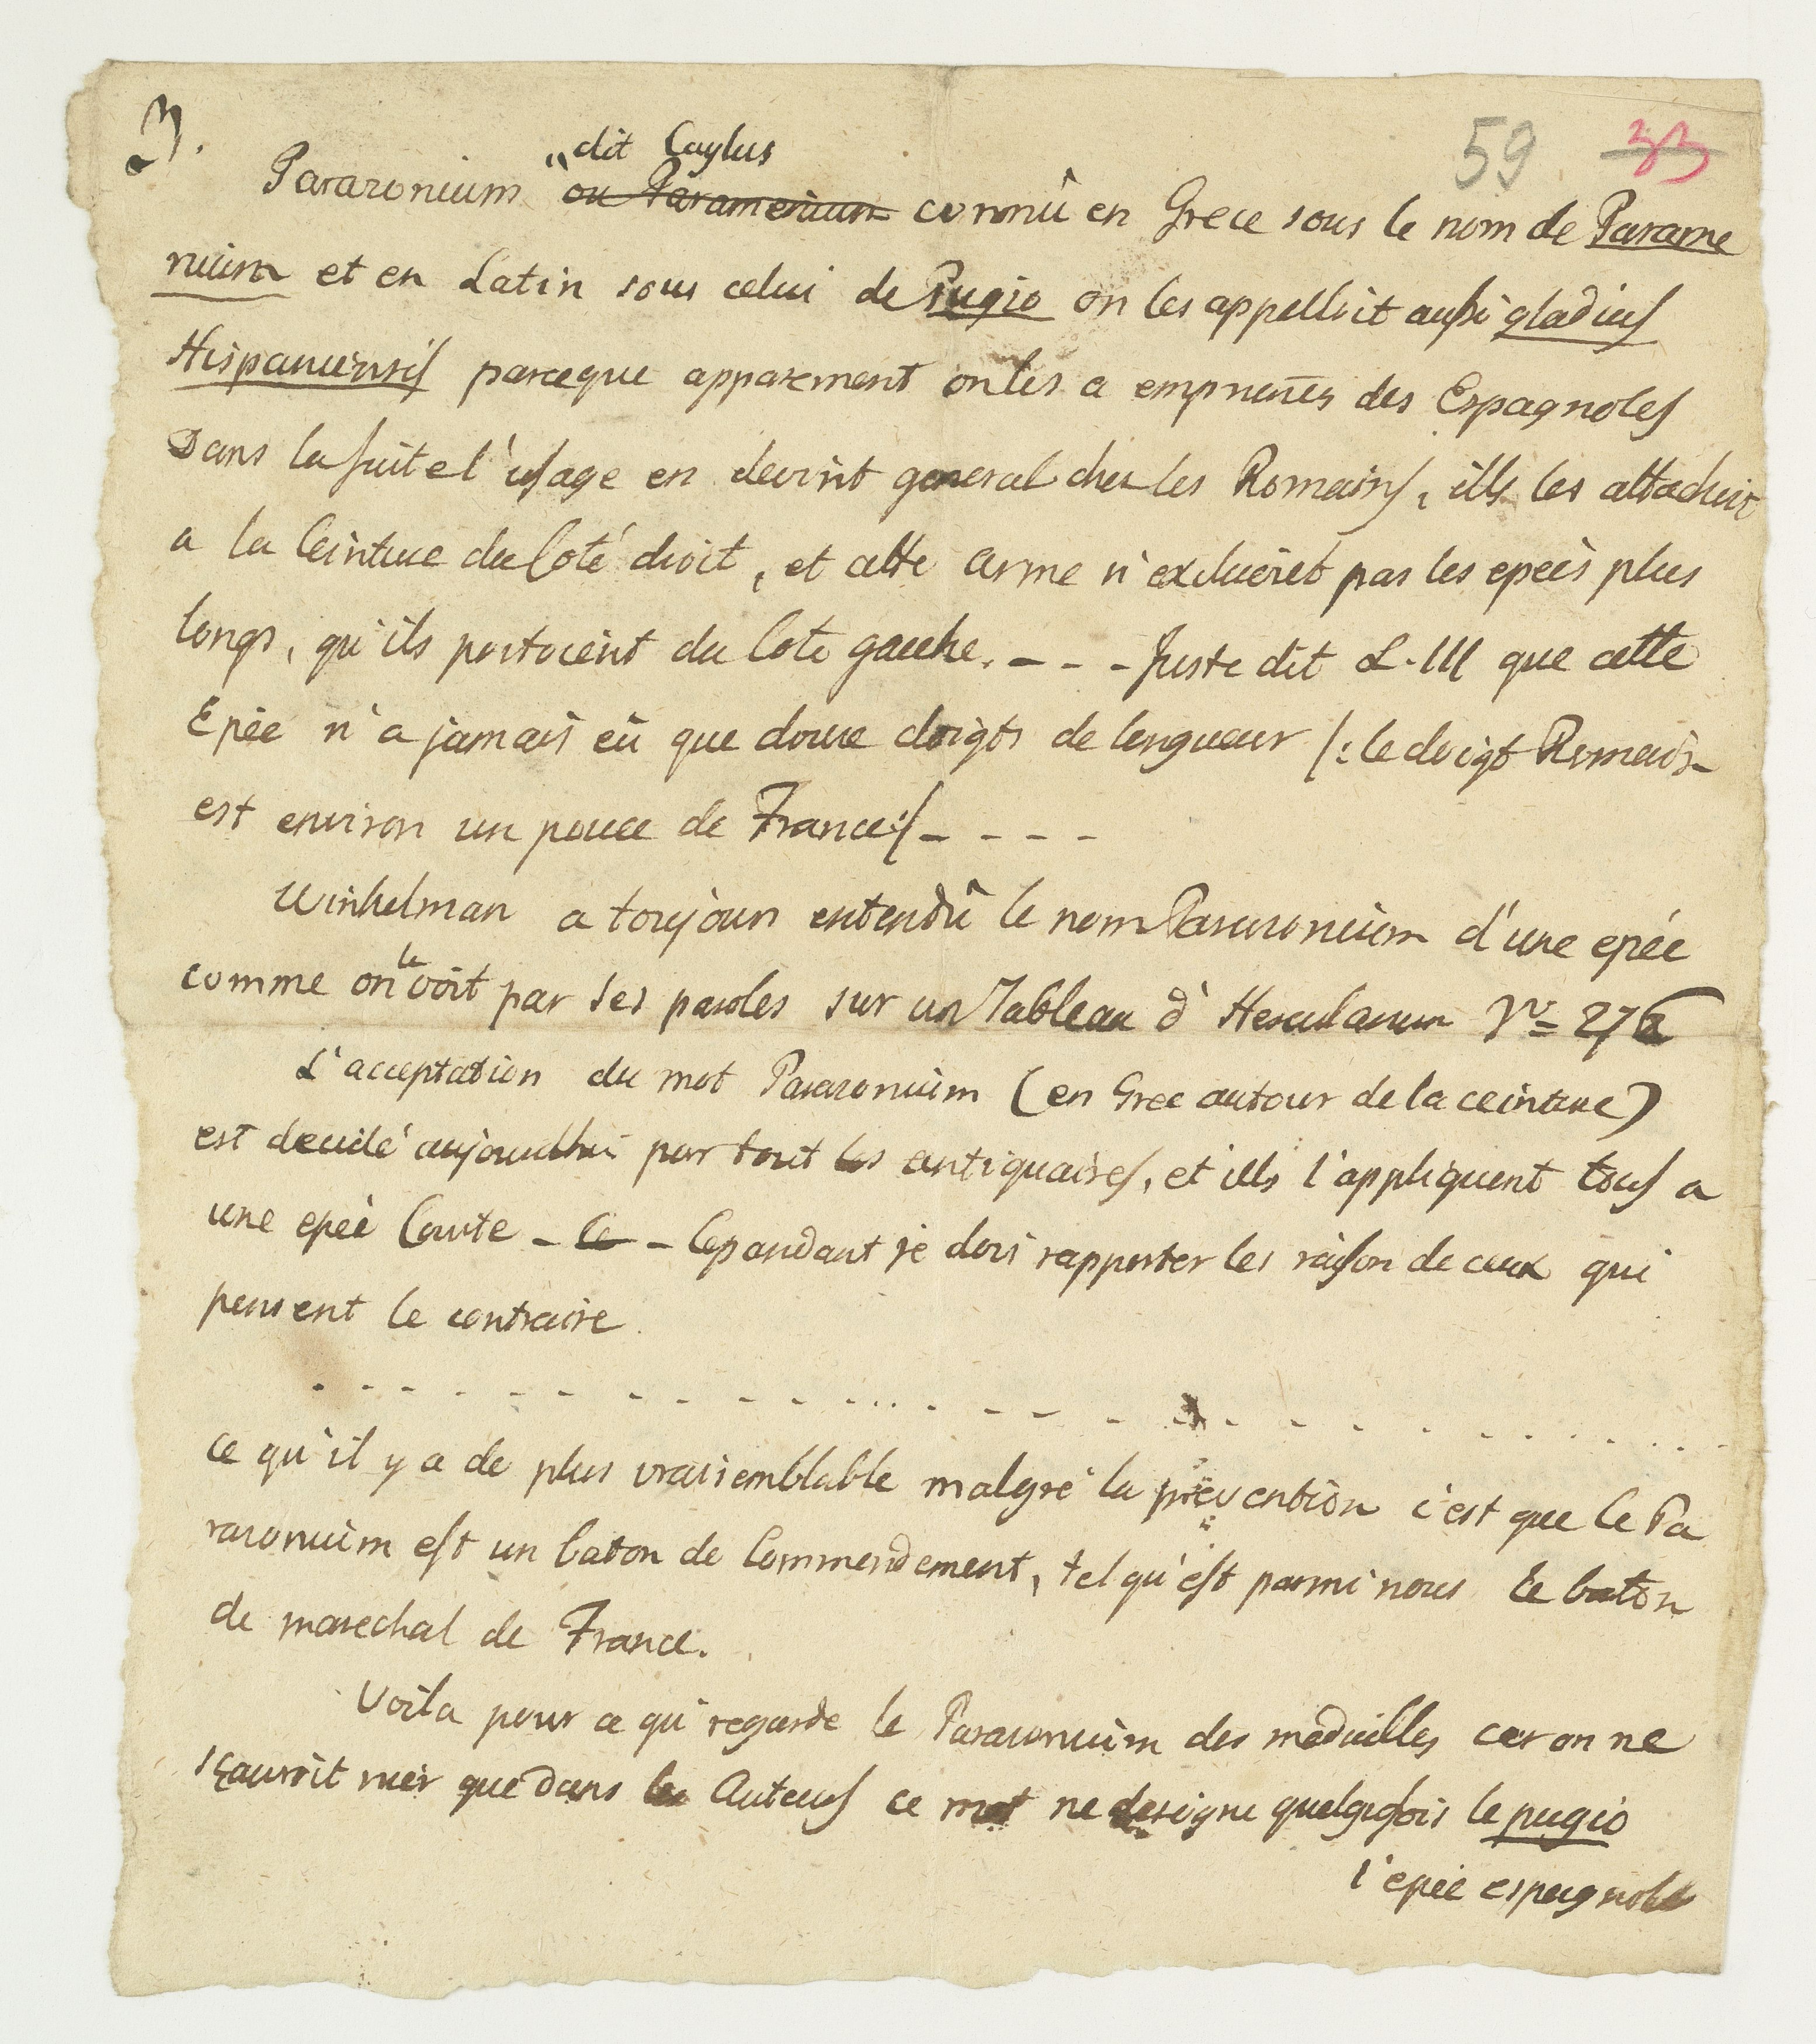 3.
59 33
" dit Caylus
Pararonium ou Paramerium connû en Grece sous le nom de Parame
nium et en Latin sous celui de Pugio on les appelloit aussi gladius
Hispaniensis parceque apparement on les a empruntés des Espagnoles
Dans la suite l'usage en devint general chez les Romains, ills les attachoit
a la Ceinture du Coté droit, et cette arme n'excluoiet pas les epeés plus
longs, qu'ils portoient du Coté gauche. - - - Juste dit L. III que cette
Epée n'a jamais eû que douze doigts de longueur /: le doigt Romain
est environ un pouce de France :/ - - - -
Winkelman a toujours entendû le nom Pararonium d'une epée
le
comme on voit par ses paroles sur un Tableau d'Herculanum No 276
L'acceptation du mot Pararonium (en Grec autour de la ceinture)
est decidé aujourdhui par tout les antiquaires, et ills l'appliquent tous a
une epeé Courte - Ce - Cepandant je dois rapporter les raison de ceux qui
pensent le contraire.
- - - - - - - - - - - - - - - - - - - - - - - -
ce qu'il y a de plus vraisemblable malgré la prevention c'est que le Pa
raronium est un baton de Commendement, tel qu'est parmi nous le baton
de marechal de France.
Voila pour ce qui regarde le Pararonium des medailles car on ne
sçauroit nier que dans les Auteurs ce mot ne designe quelqefois le pugio
l'epée espagnole